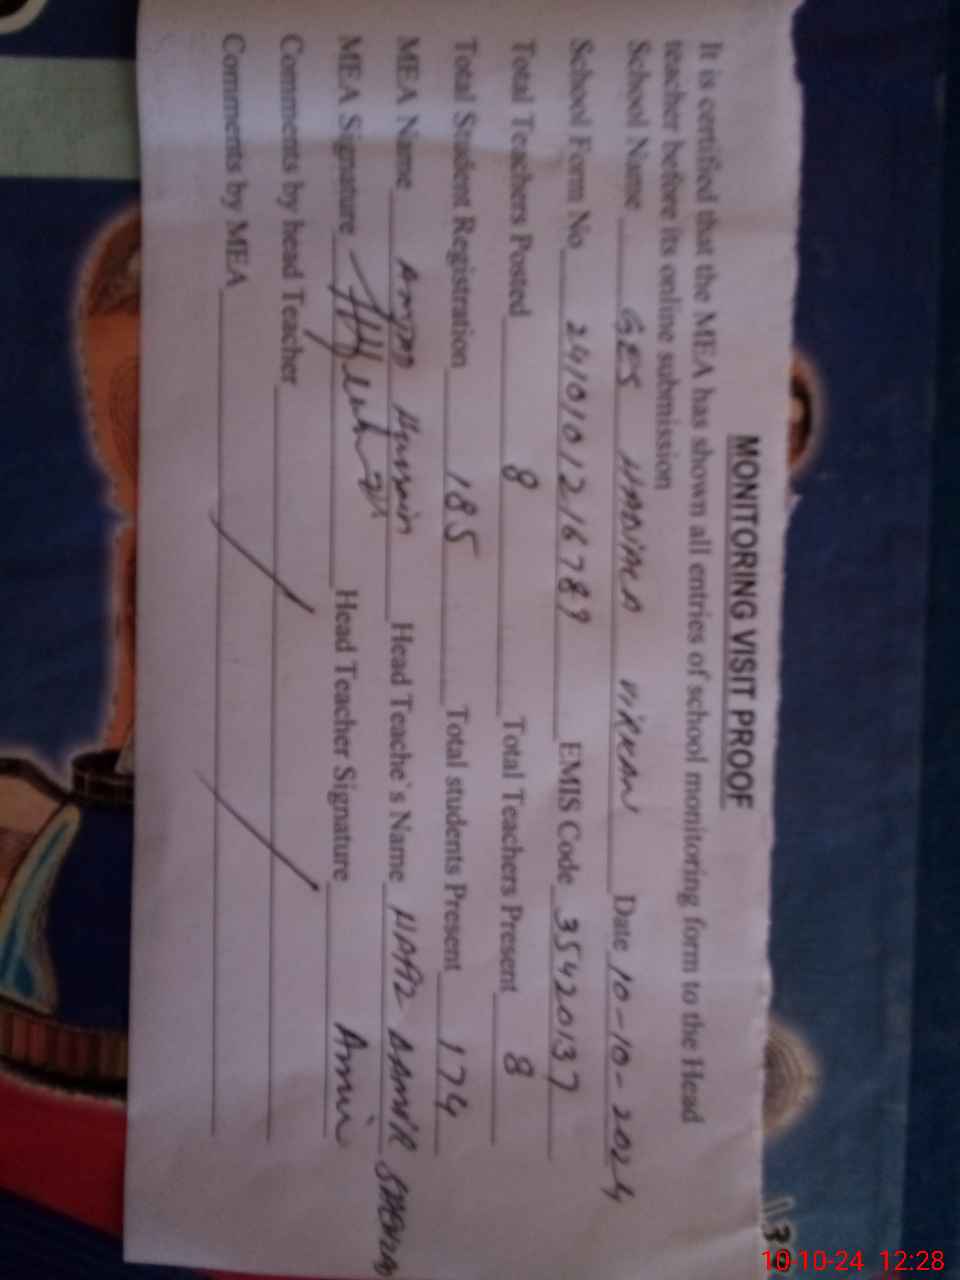 MONITORING VISIT PROOF
It is certified that the MEA has shown all entries of school monitoring form to the Head
teacher before its online submission
School Name GES VIRKAN Date 10-10-2024
School Form No 2410101216789 EMIS Code 35420137
Total Teachers Posted 8 Total Teachers Present 8
Total Student Registration 185 Total students Present 174
MEA Name Hussain Head Teache's Name AAMIR
MEA Signature Head Teacher Signature
Comments by head Teacher
Comments by MEA
10-10-24 12:28